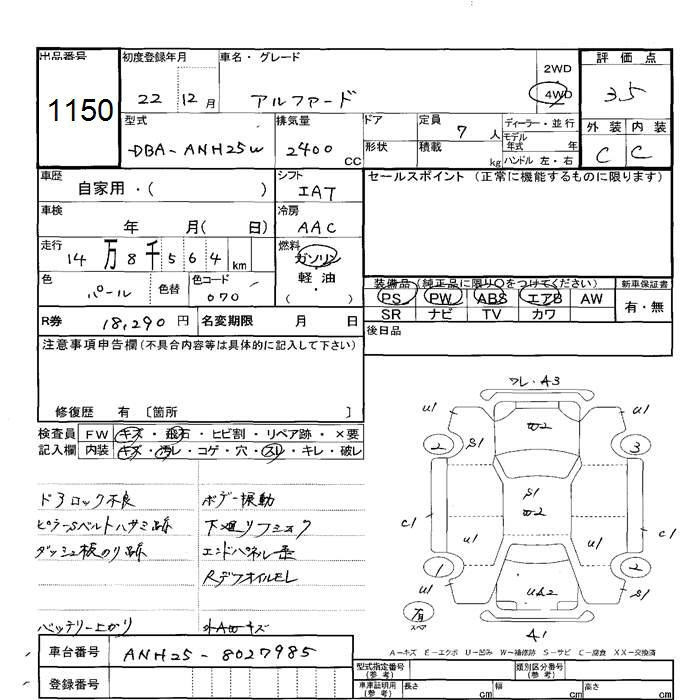 出品番号
1150
初度登録年月
22 12月
車名・グレード
アルファード
2WD
4WD
評価点
3.5
外装 内装
C C
型式
DBA-ANH25W
排気量
2400 CC
ドア
形状
定員
7 人
積載
kg
ディーラー・並行
モデル年式 年
ハンドル 左・右
車歴
自家用・( )
シフト
IAT
セールスポイント (正常に機能するものに限ります)
車検
年 月( 日)
冷房
AAC
走行
14万8千564 km
燃料
ガソリン
軽油
( ・ )
色
パール
色替
色コード
070
装備品(純正品に限り○をつけてください)
PS PW ABS エアB AW
SR ナビ TV カワ
新車保証書
有・無
R券 18,290円
名変期限 月 日
後日品
注意事項申告欄(不具合内容等は具体的に記入して下さい)
修復歴 有 〔箇所 〕
検査員記入欄
FW キズ・飛石・ヒビ割・リペア跡・×要
内装 キズ・汚レ・コゲ・穴・スレ・キレ・破レ
ドアロック不良
ピラーSベルトハサミ跡
ダッシュ板のり跡
バッテリー上がり
ボデー振動
下廻りフショク
エンドパネル歪
RデフオイルEL
外AWキズ
ワレ・A3
U1
U1
W2
2
S1
S1
3
S1
W2
C1
C1
U1
U1
1
2
UA2
有
スペア
A1
A-キズ E-エクボ U-凹み W-補修跡 S-サビ C-腐食 XX-交換済
車台番号 ANH25-8027985
登録番号
型式指定番号(参考)
類別区分番号(参考)
車庫証明用(参考)
長さ cm
幅 cm
高さ cm